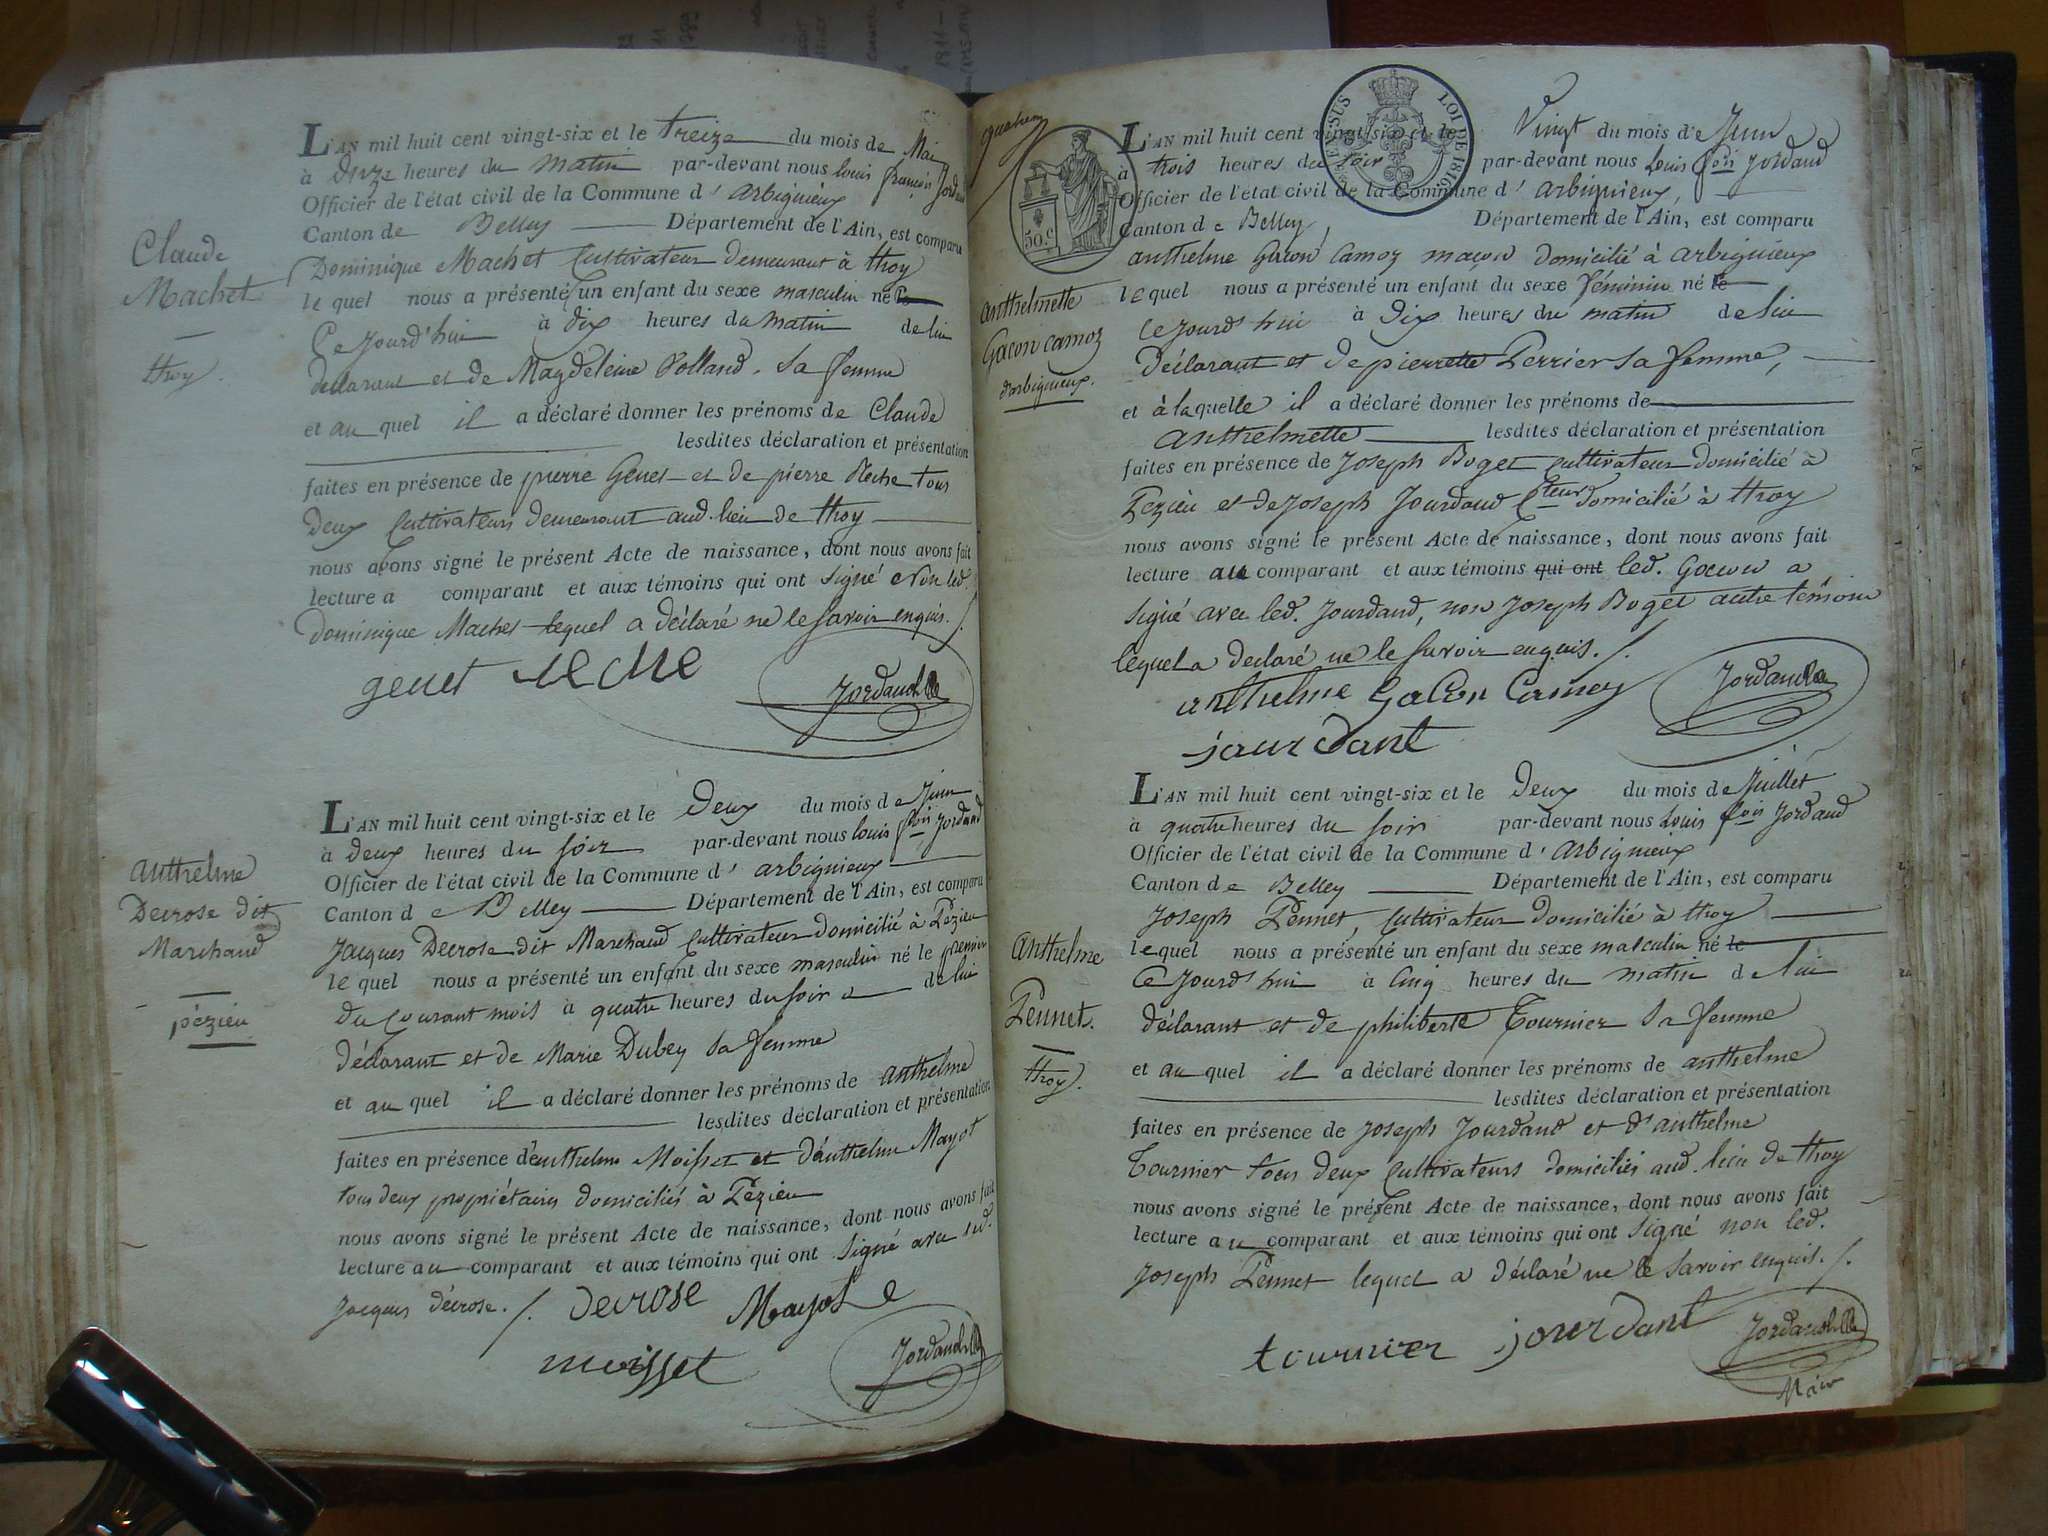 Claude
Machet
throy.
L'AN mil huit cent vingt-six et le treize du mois de Mai
à onze heures du matin par-devant nous louis françois Jordand
Officier de l'état civil de la Commune d'arbignieux
Canton de Belley Département de l'Ain, est comparu
Dominique Machet Cultivateur demeurant à throy
le quel nous a présenté un enfant du sexe masculin né le
Ce jourd'hui à dix heures du matin de lui
déclarant et de Magdeleine Polland sa femme
et au quel il a déclaré donner les prénoms de Claude
lesdites déclaration et présentation
faites en présence de pierre Genet et de pierre Reche tous
deux Cultivateurs demeurant aud. lieu de throy
nous avons signé le présent Acte de naissance, dont nous avons fait
lecture a comparant et aux témoins qui ont signé et non led.
Dominique Machet lequel a déclaré ne le savoir enquis./.
genet reche Jordand
anthelme
Decrose dit
Marchand
pézieu
L'AN mil huit cent vingt-six et le deux du mois de Juin
à deux heures du soir par-devant nous louis fois Jordand
Officier de l'état civil de la Commune d'arbignieux
Canton de Belley Département de l'Ain, est comparu
Jacques Decrose dit Marchand Cultivateur domicilié à Pézieu
le quel nous a présenté un enfant du sexe masculin né le premier
du Courant mois à quatre heures du soir de lui
déclarant et de Marie Dubey sa femme
et au quel il a déclaré donner les prénoms de anthelme
lesdites déclaration et présentation
faites en présence d'anthelme Moisset et d'anthelme Mayot
tous deux propriétaires domiciliés à Pézieu
nous avons signé le présent Acte de naissance, dont nous avons fait
lecture au comparant et aux témoins qui ont signé avec led.
Jacques décrose./. decrose Mayot
moisset Jordand
50.c
EN SUS LOI DE 1816
anthelmette
Gacon camoz
d'arbignieux.
L'AN mil huit cent vingt-six et le Vingt du mois de Juin
à trois heures du soir par-devant nous Louis fois Jordand
Officier de l'état civil de la Commune d'arbignieux,
Canton de Belley, Département de l'Ain, est comparu
anthelme Gacon Camoz maçon domicilié à arbignieux
le quel nous a présenté un enfant du sexe féminin né le
Ce jourd'hui à dix heures du matin de lui
déclarant et de pierrette Perrier sa femme,
et à laquelle il a déclaré donner les prénoms de
anthelmette lesdites déclaration et présentation
faites en présence de Joseph Boget cultivateur domicilié à
Pezieu et de Joseph Jourdand Cteur domicilié à throy
nous avons signé le présent Acte de naissance, dont nous avons fait
lecture au comparant et aux témoins qui ont led. Gacon a
signé avec led. Jourdand, non Joseph Boget autre témoin
lequel a déclaré ne le savoir enquis./.
anthelme Gacon Camoz Jordand
jourdant
Anthelme
Pennet.
throy.
L'AN mil huit cent vingt-six et le deux du mois de Juillet
à quatre heures du soir par-devant nous Louis fois Jordand
Officier de l'état civil de la Commune d'arbignieux
Canton de Belley Département de l'Ain, est comparu
Joseph Pennet, Cultivateur domicilié à throy
le quel nous a présenté un enfant du sexe masculin né le
Ce jourd'hui à cinq heures du matin de lui
déclarant et de philiberte Tournier sa femme
et au quel il a déclaré donner les prénoms de anthelme
lesdites déclaration et présentation
faites en présence de Joseph Jourdand et d'anthelme
Tournier tous deux Cultivateurs domiciliés aud. lieu de throy
nous avons signé le présent Acte de naissance, dont nous avons fait
lecture au comparant et aux témoins qui ont signé non led.
Joseph Pennet lequel a déclaré ne le savoir enquis./.
tournier jourdant Jordand